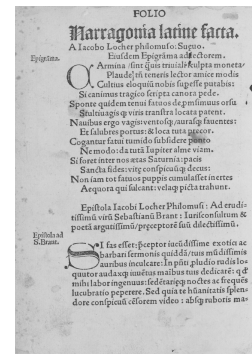 FOLIO
Narragonia latine facta.
A Iacobo Locher philomuso: Sueuo.
Epigrāma. Eiusdem Epigrāma ad lectorem.
CArmina sunt quis triuiali sculpta moneta
Plaude tñ teneris lector amice modis
Cultius eloquiū nobis supesse putabis:
Si canimus tragico scripta canora pede.
Sponte quidem tenui fatuos deṗmsimus orsu
Stultiuagis viris transtra locata patent.
Nauibus ergo vagis ventosq aurasq fauentes:
Et salubres portus: & loca tuta precor.
Cogantur fatui tumido subsidere ponto
Ne modo: da tuta Iupiter alme viam.
Si foret inter nos ætas Saturnia: pacis
Sancta fides: vitę conspicuūq decus:
Non iam tot fatuos puppis cumulasset inertes
Aequora qui sulcant: velaq picta trahunt.
Epistola Iacobi Locher Philomusi: Ad erudi-
tissimū virū Sebastianū Brant: Iurisconsultum &
poetā argutissimū/ pręceptorē suū dilectissimū.
Epistola ad
S. Brant.
SI fas esset: pceptor iucūdissime exotica ac
barbari sermonis quiddā/ tuis mūdissimis
auribus inculcare: In pñti pludio rudis lo-
quutor audaxq inuētus maibus tuis dedicarē: q d
mihi labor ingenuus: sedētarięq noctes ac frequēs
lucubratio peperere. Sed quia te hūanitatis splen-
dore conspicuū cēsorem video: absq ruboris ma-